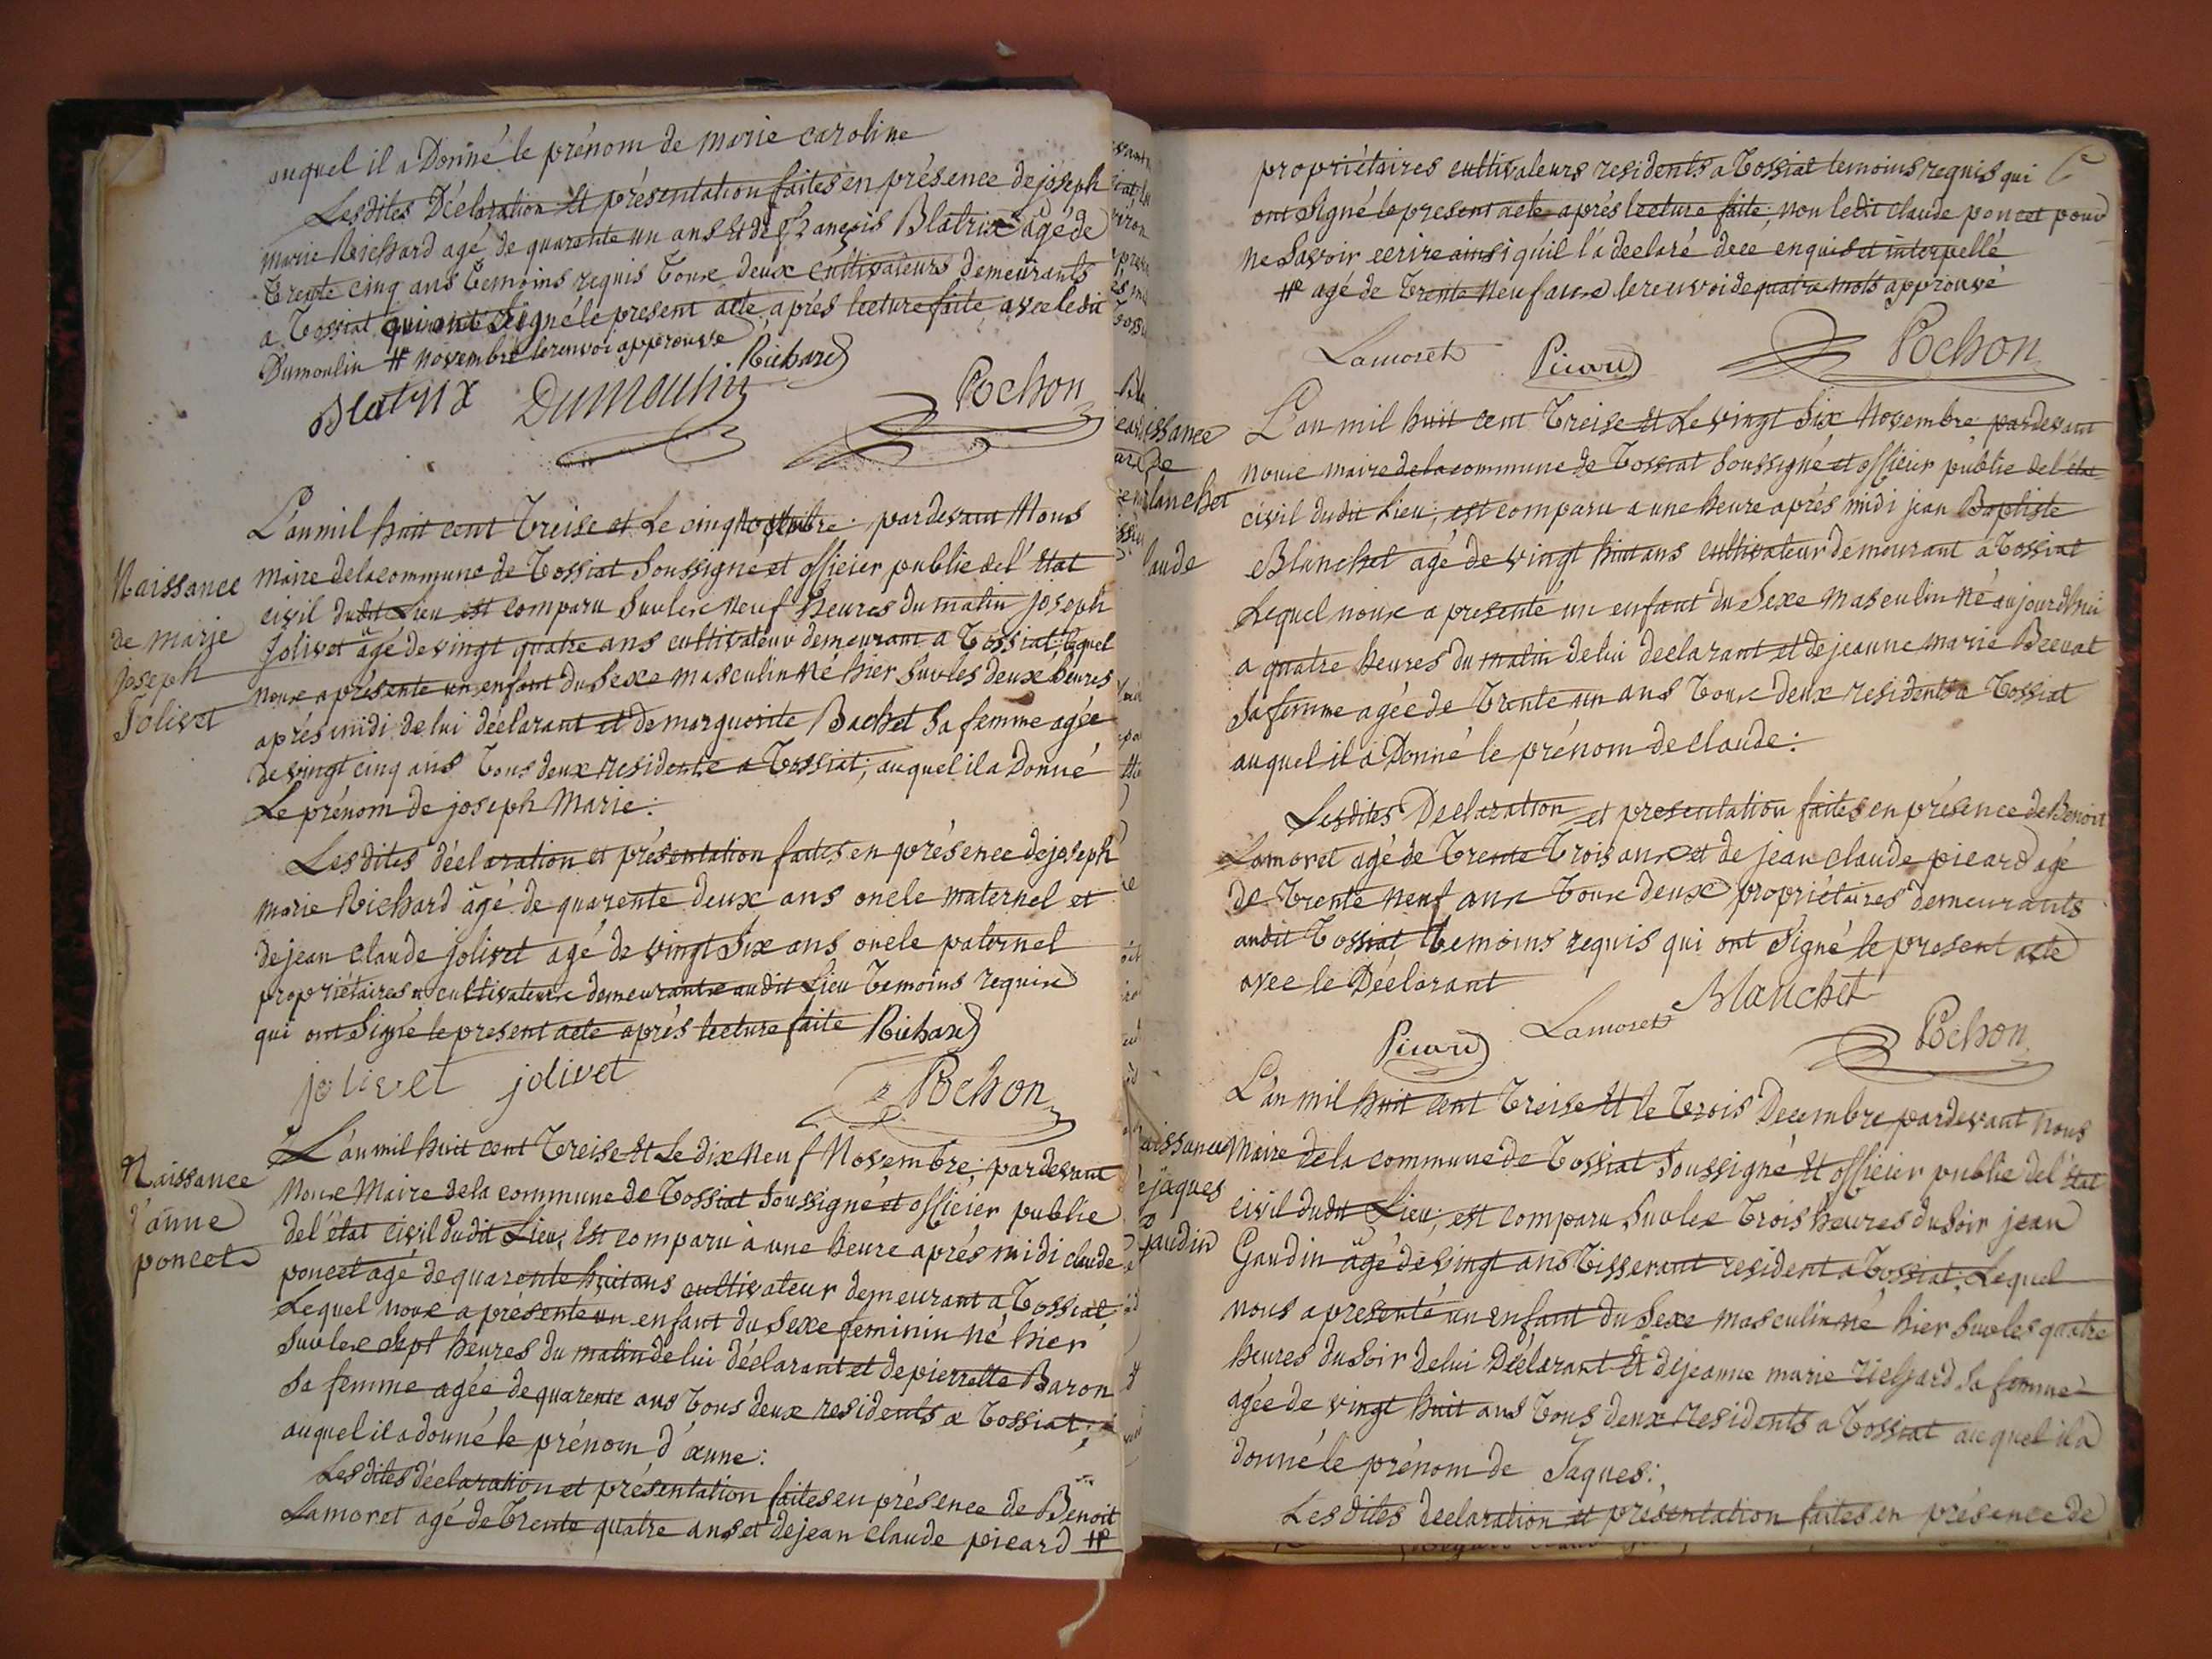 auquel il a Donné le prénom de marie caroline
Lesdites Déclaration Et présentation faites en présence de joseph
marie Richard agé de quarente un ans Et de françois Blatrix agé de
Trente cinq ans Temoins requis Toux deux cultivateurs demeurants
a Tossiat qui ont Signé le present acte, aprés lecture faite avec ledit
Dumoulin # novembre le renvoi approuvé
Richard
Blatrix Dumoulin Rochon
L'an mil huit cent Treise et Le cinq Novembre pardevant Nous
Naissance
de marie
joseph
Jolivet
maire de la commune de Tossiat Soussigné et officier public del' Etat
civil dudit Lieu est comparu Sur les Neuf heures du matin joseph
Jolivet âgé de vingt quatre ans cultivateur demeurant a Tossiat; Lequel
noux a présenté un enfant du Sexe masculin Né hier Sur les deux heures
aprés midi de lui déclarant et de marguerite Bachet Sa femme agée
de vingt cinq ans Tous deux residents a Tossiat; auquel il a Donné
Le prénom de joseph Marie:
Lesdites déclaration et présentation faites en présence de joseph
marie Richard âgé de quarente deux ans oncle maternel et
de jean claude jolivet agé de vingt Six ans oncle paternel
propriétaires et cultivateurs demeurants audit Lieu Temoins requis
qui ont Signé le present acte aprés lecture faite Richard
jolivet jolivet Rochon
Naissance
d'anne
poncet
L'an mil huit cent Treise Et Le dix Neuf Novembre; pardevant
Noux Maire de la commune de Tossiat Soussigné et officier public
del'état civil dudit Lieu, Est comparu à une heure aprés midi claude
poncet agé de quarente huit ans cultivateur demeurant a Tossiat
Lequel noux a présenté un enfant du Sexe feminin né hier
Sur les Sept heures du matin de lui déclarant et de pierrette Baron
Sa femme agée de quarente ans Tous deux residents a Tossiat;
auquel il a donné le prénom d'anne:
Lesdites déclaration et présentation faites en présence de Benoit
Lamoret agé de Trente quatre ans et de jean claude picard #
propriétaires cultivateurs residents a Tossiat temoins requis qui
ont Signé le present acte aprés lecture faite; non ledit claude poncet pour
ne Savoir ecrire ainsi qu'il l'a declaré de ce enquis et interpellé
# agé de Trente Neuf ans le renvoi de quatre mots approuvé
Lamoret Picard Rochon
issance
de
lanchet
laude
L'an mil huit cent Treise Et Le vingt Six Novembre pardevant
noux maire de la commune de Tossiat Soussigné et officier public del'état
civil dudit Lieu; est comparu a une heure aprés midi jean Baptiste
Blanchet agé de vingt huit ans cultivateur demeurant a Tossiat
Lequel noux a presenté un enfant du Sexe masculin Né aujourdhui
a quatre heures du matin de lui declarant et de jeanne marie Brevat
Sa femme agée de Trente un ans Toux deux residents a Tossiat
auquel il a Donné le prénom de claude:
Lesdites Declaration et presentation faites en présence de Benoit
Lamoret agé de Trente Trois ans et de jean claude picard agé
de Trente neuf ans Toux deux propriétaires demeurants
audit Tossiat Temoins requis qui ont Signé le present acte
avec le Déclarant
Blanchet
Picard Lamoret Rochon
aissance
e jaques
gaudin
L'an mil huit cent Treise Et le Trois Decembre pardevant Nous
Maire de la commune de Tossiat Soussigné Et officier public del'Etat
civil dudit Lieu; est comparu Sur les Trois heures du Soir jean
Gaudin âgé de vingt ans Tisserant resident a Tossiat; Lequel
nous a presenté un enfant du Sexe masculin né hier Sur les quatre
heures du Soir de lui Déclarant Et de jeanne marie richard Sa femme
agée de vingt huit ans Tous deux residents a Tossiat auquel il a
donné le prénom de Jaques:
Lesdites declaration et présentation faites en présence de